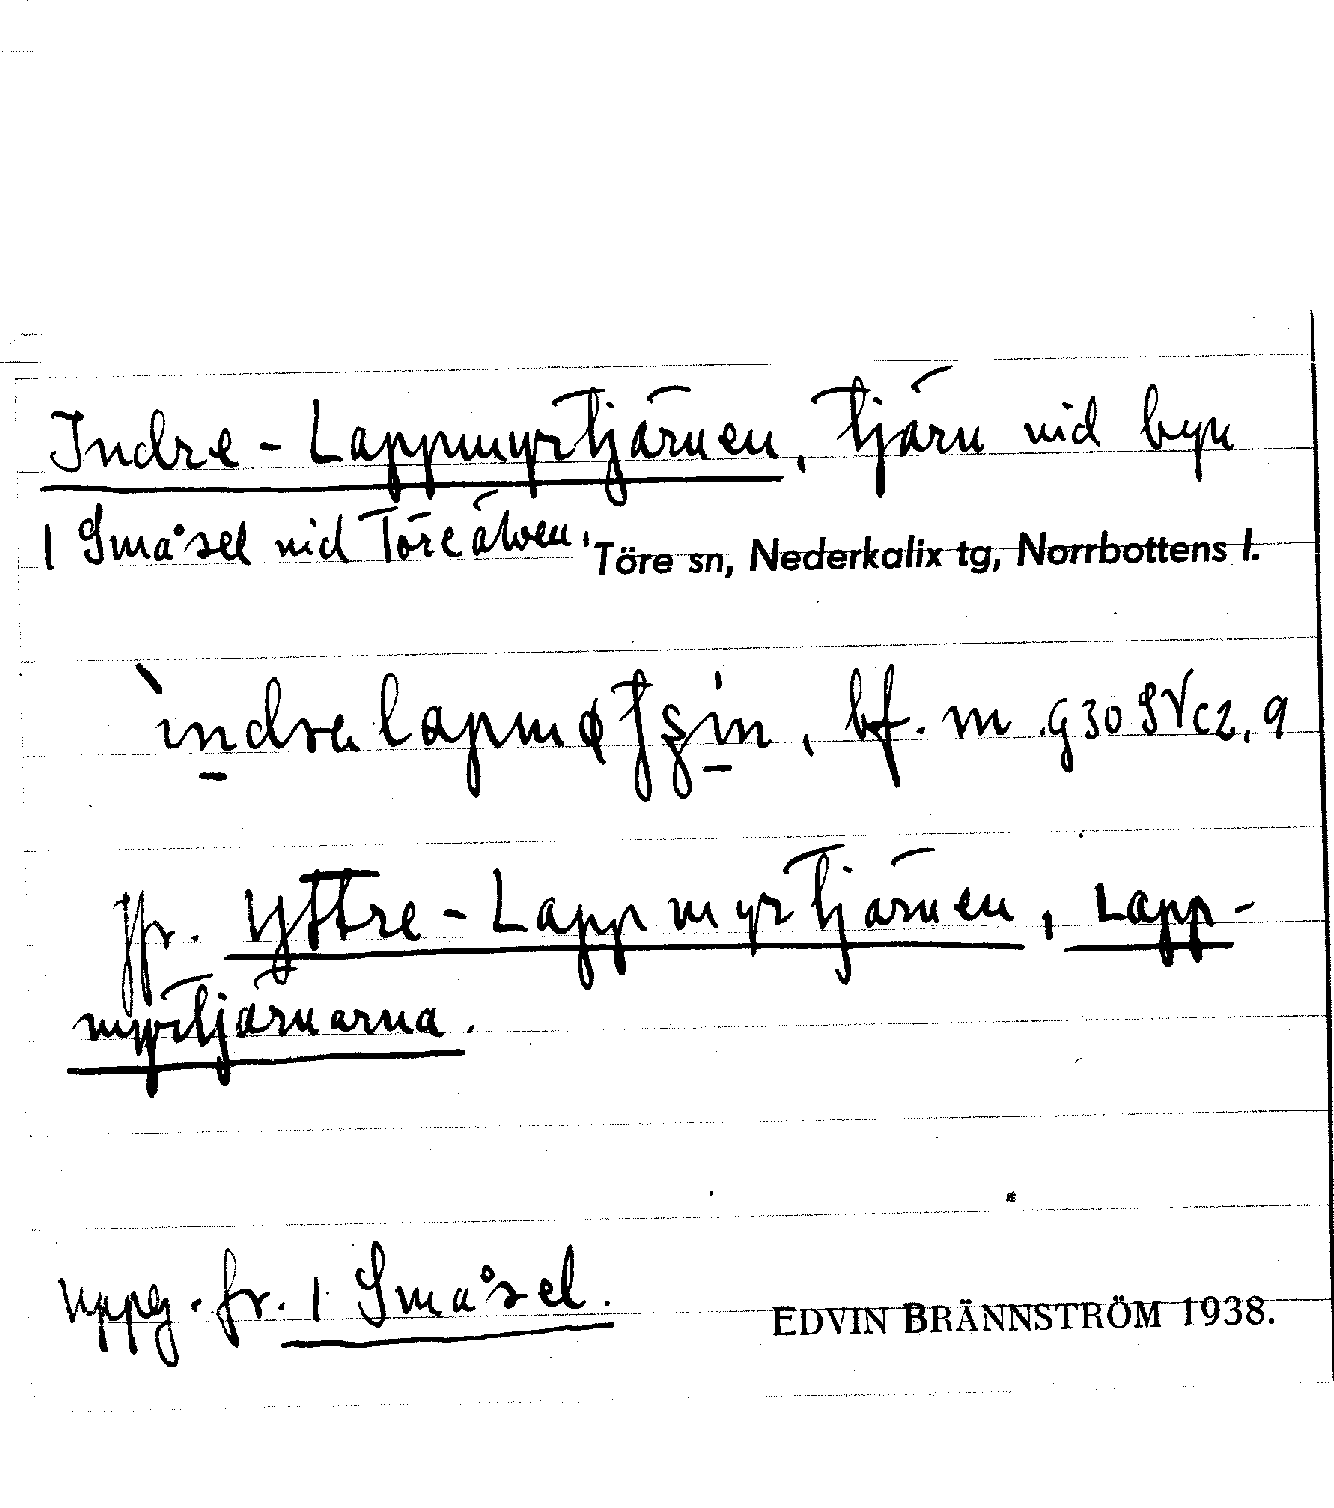 Indre-Lappmyrtjärnen, tjärn vid byn
1 Småsel vid Töreälven, Töre sn, Nederkalix tg, Norrbottens l.
bf. m. g 30 SV c2, 9
jfr. Yttre-Lappmyrtjärnen, Lapp-
myrtjärnarna.
uppg. fr. 1 Småsel.
EDVIN BRÄNNSTRÖM 1938.